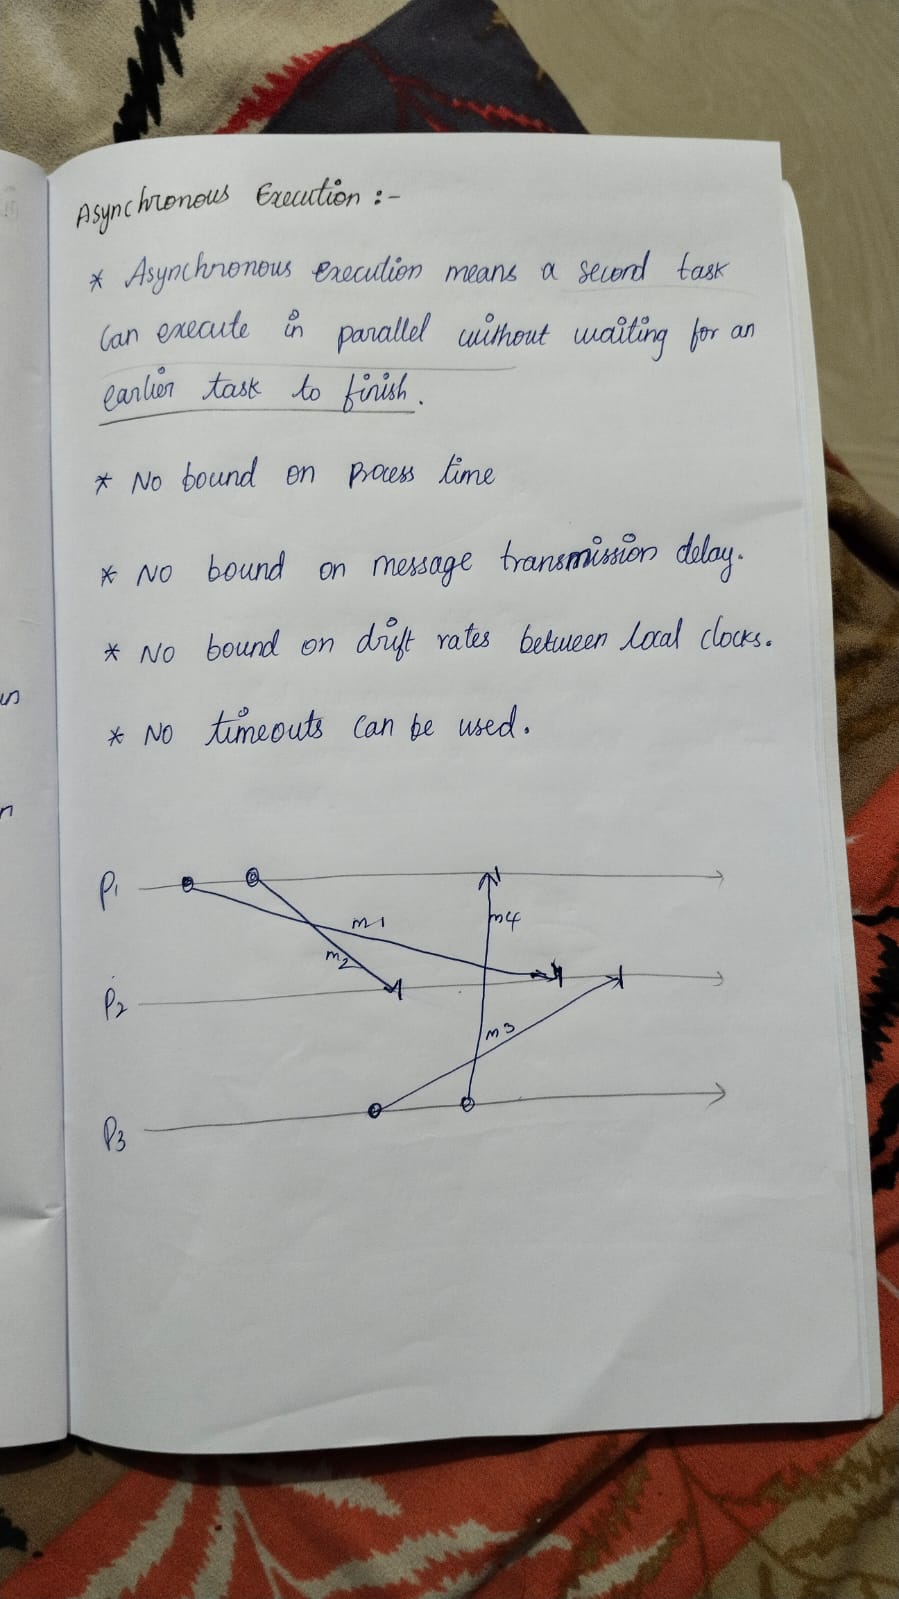 Asynchronous Execution :-
* Asynchronous execution means a second task
can execute in parallel without waiting for an
earlier task to finish.
* No bound on process time
* No bound on message transmission delay.
* No bound on drift rates between local clocks.
* No timeouts can be used.
P1
m1
m4
m2
P2
m3
P3